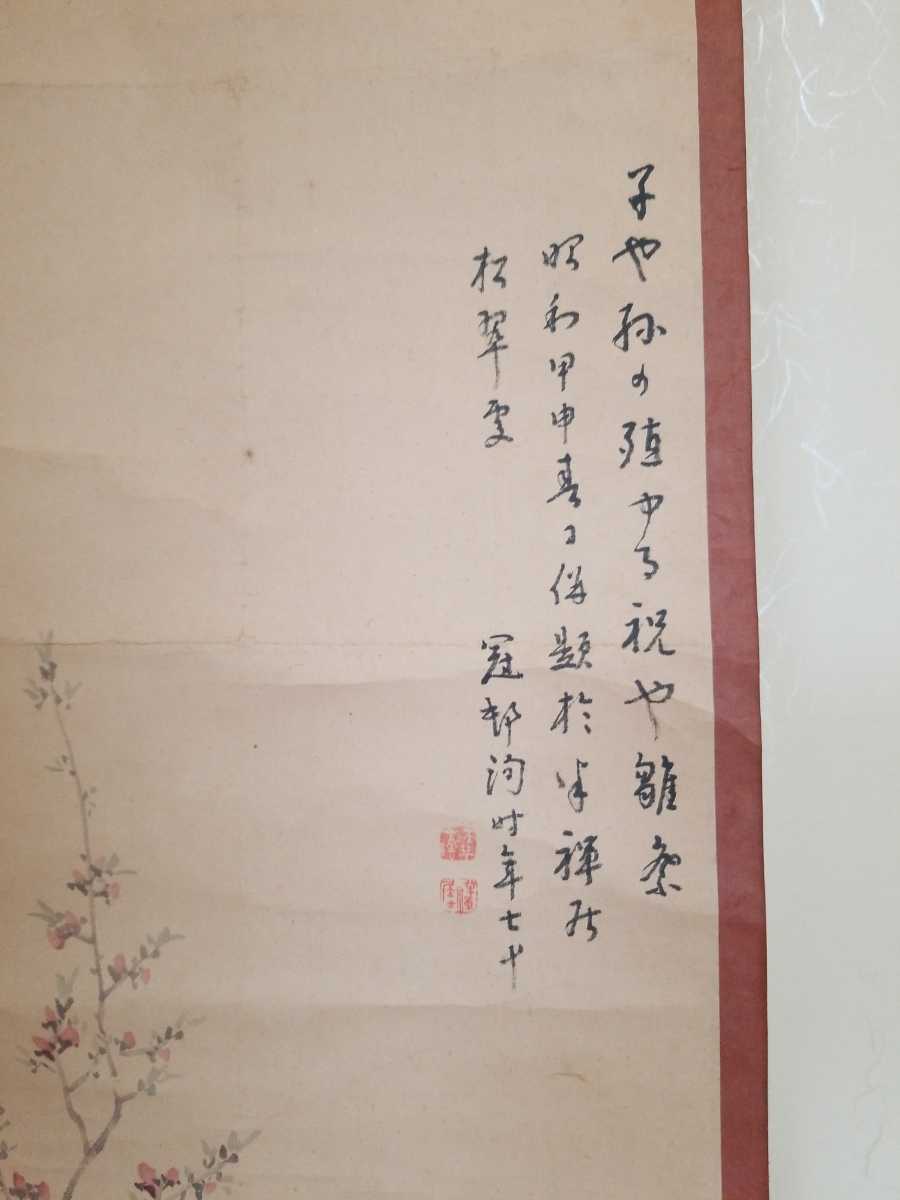 子や孫の殖ゆる祝や雛祭
昭和甲申春日併題於半禅居
松翠
冠邨 時年七十